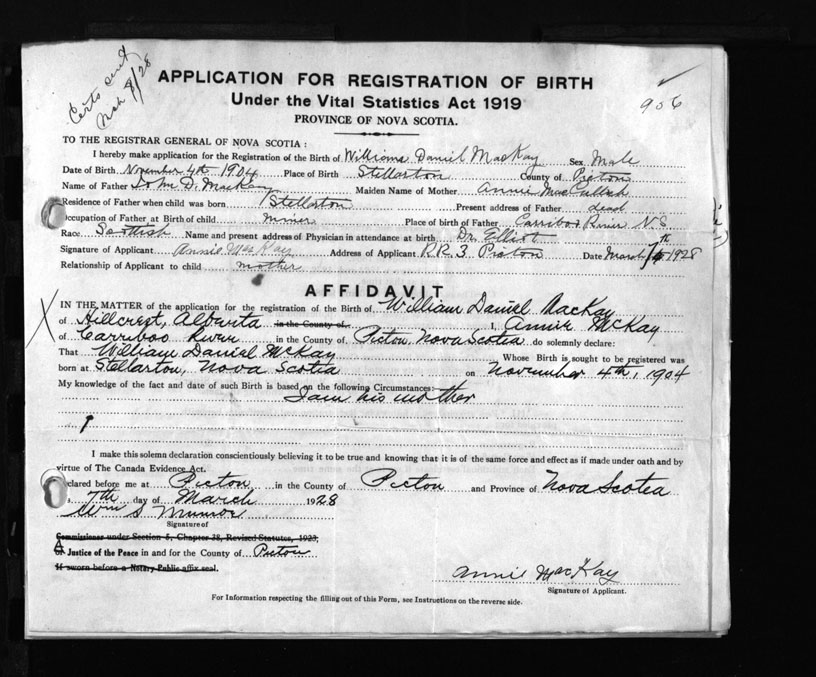 Certs sent
Mch 8/28
906
APPLICATION FOR REGISTRATION OF BIRTH
Under the Vital Statistics Act 1919
PROVINCE OF NOVA SCOTIA.
TO THE REGISTRAR GENERAL OF NOVA SCOTIA :
I hereby make application for the Registration of the Birth of William Daniel MacKay Sex Male
Date of Birth November 4th 1904 Place of Birth Stellarton County of Picton
Name of Father John D. MacKay Maiden Name of Mother Annie MacCulloh
Residence of Father when child was born Stellarton Present address of Father dead
Occupation of Father at Birth of child miner Place of birth of Father Carriboo River N.S
Race Scottish Name and present address of Physician in attendance at birth Dr. Elliot
Signature of Applicant Annie MacKay Address of Applicant R.R. 3 Picton Date March 7th 1928
Relationship of Applicant to child mother
AFFIDAVIT
IN THE MATTER of the application for the registration of the Birth of William Daniel MacKay
of Hillcrest, Alberta in the County of I, Annie McKay
of Carriboo River in the County of Picton, Nova Scotia do solemnly declare:
That William Daniel McKay Whose Birth is sought to be registered was
born at Stellarton, Nova Scotia on November 4th, 1904
My knowledge of the fact and date of such Birth is based on the following Circumstances:
I am his mother
I make this solemn declaration conscientiously believing it to be true and knowing that it is of the same force and effect as if made under oath and by
virtue of The Canada Evidence Act.
eclared before me at Picton in the County of Picton and Province of Nova Scotia
7th day of March 1928
Wm S Munroe
Signature of
Commissioner under Section 5, Chapter 38, Revised Statutes, 1923,
A or Justice of the Peace in and for the County of Picton
If sworn before a Notary Public affix seal.
Annie MacKay
Signature of Applicant.
For Information respecting the filling out of this Form, see Instructions on the reverse side.